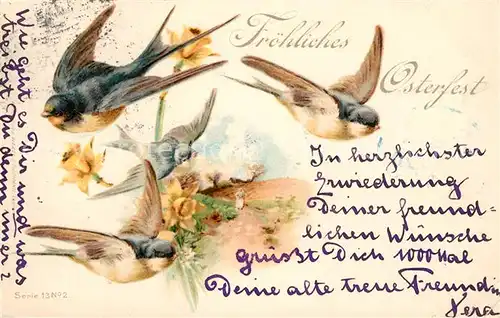 Fröhliches
Osterfest
In herzlichster
Erwiederung
Deiner freund-
lichen Wünsche
grüsst Dich 1000 Mal
Deine alte treue Freundin
Vera
Wie geht es Dir und was
treibst Du denn immer?
Serie 13 No 2